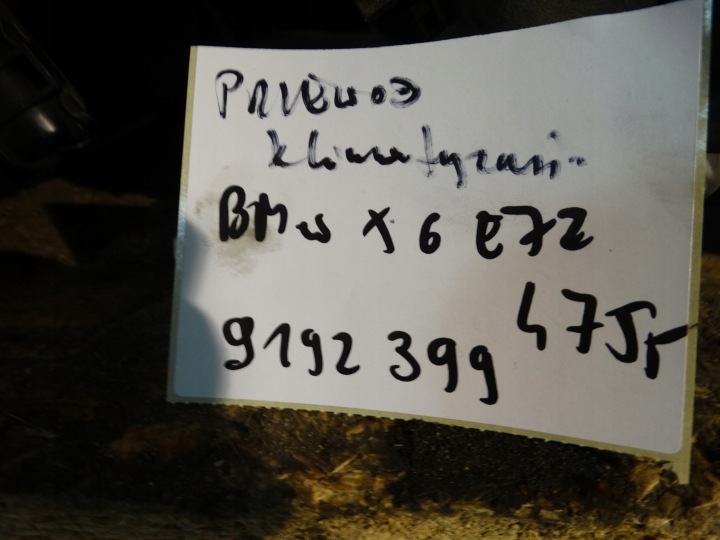 PRZEWÓD
klimatyzacji
BMW X6 E72
9192399